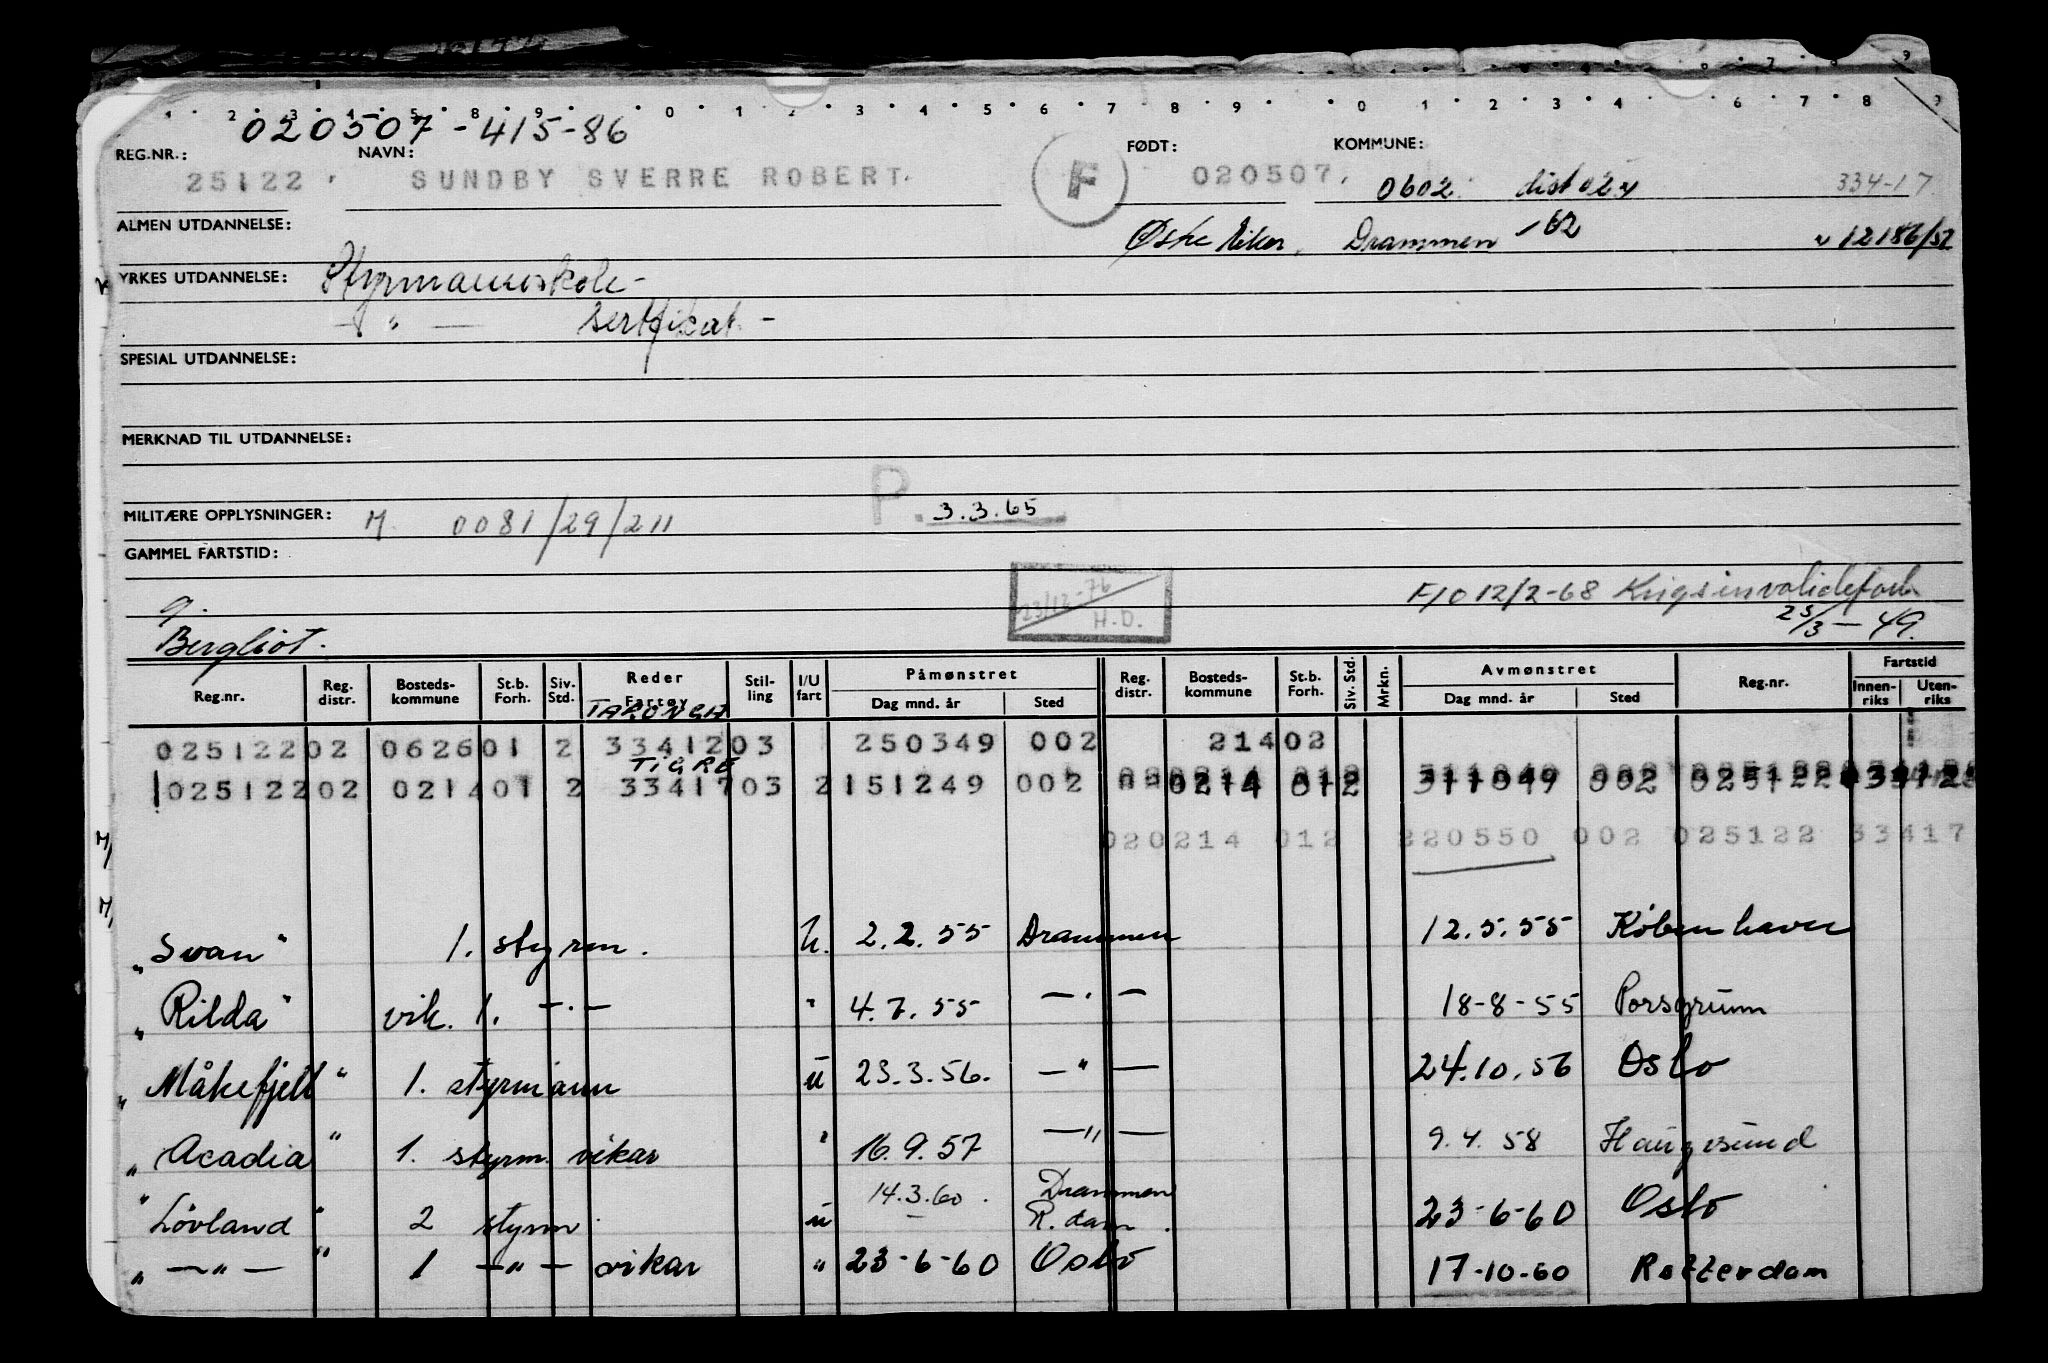 020507-415-86
REG.NR.: NAVN: FØDT: KOMMUNE:
25122 SUNDBY SVERRE ROBERT. F 020507. 0602 334-17
ALMEN UTDANNELSE: Drammen -62 12186/52
YRKES UTDANNELSE: Styrmannskole -
— " — sertfikat. -
SPESIAL UTDANNELSE:
MERKNAD TIL UTDANNELSE:
MILITÆRE OPPLYSNINGER: M. 0081/29/211 P. 3.3.65
GAMMEL FARTSTID:
23/12-76 H.D.
F/O 12/2-68 Krigsinvalideforb.
Bergliot. 25/3-49.
Reg.nr. Reg. distr. Bosteds-kommune St.b. Forh. Siv. Std. Reder Fartøy Stil-ling I/U fart Påmønstret Dag mnd. år Sted Reg. distr. Bosteds-kommune St.b. Forh. Siv. Std. Mrkn. Avmønstret Dag mnd. år Sted Reg.nr. Fartstid Innen-riks Uten-riks
TARONGA
02512202 062601 2 3341203 250349 002 21402
TIGRE
02512202 021401 2 3341703 2 151249 002 0214 012 311049 002 025122
020214 012 220550 002 025122 33417
"Svan" 1. styrm. U. 2.2.55 Drammen 12.5.55 København
"Rilda" vik. 1. —.— " 4.7.55 —.— 18-8-55 Porsgrunn
"Måkefjell" 1. styrmann u 23.3.56. —"— 24.10.56 Oslo
"Acadia" 1. styrm. vikar " 16.9.57 —"— 9.4.58 Haugesund
"Lövland" 2 styrm. u 14.3.60. Drammen R.dam. 23-6-60 Oslo
" —"— " 1 —"— vikar " 23-6-60 Oslo 17-10-60 Rotterdam